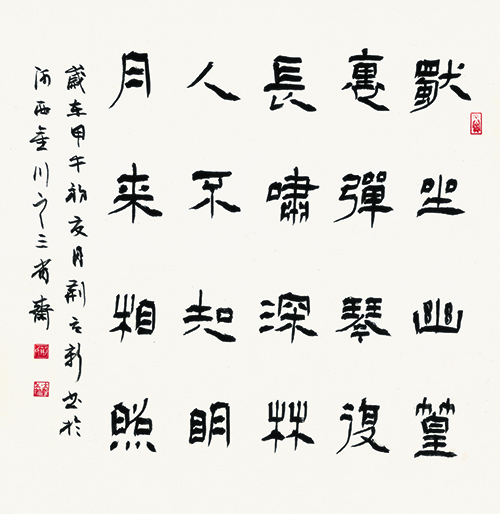 獨坐幽篁
裏彈琴復
長嘯深林
人不知眀
月来相照
歲在甲午初夏月新书於
河西金川之三省齋